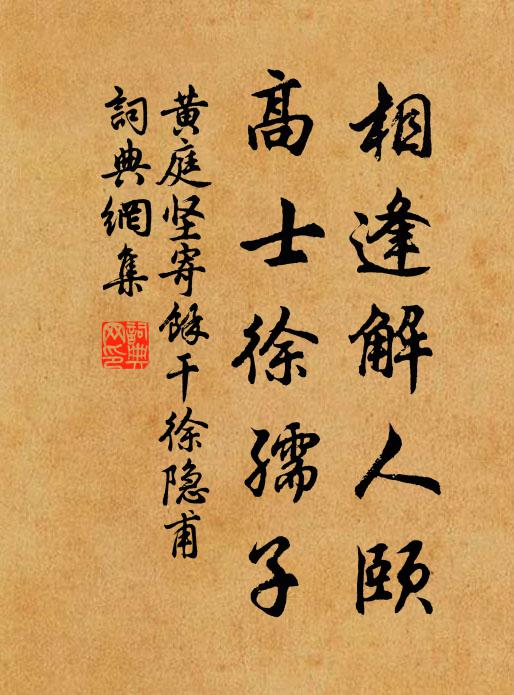 相逢解人颐
高士徐孺子
黄庭坚寄馀干徐隐甫
詞典網集
詞典
网印